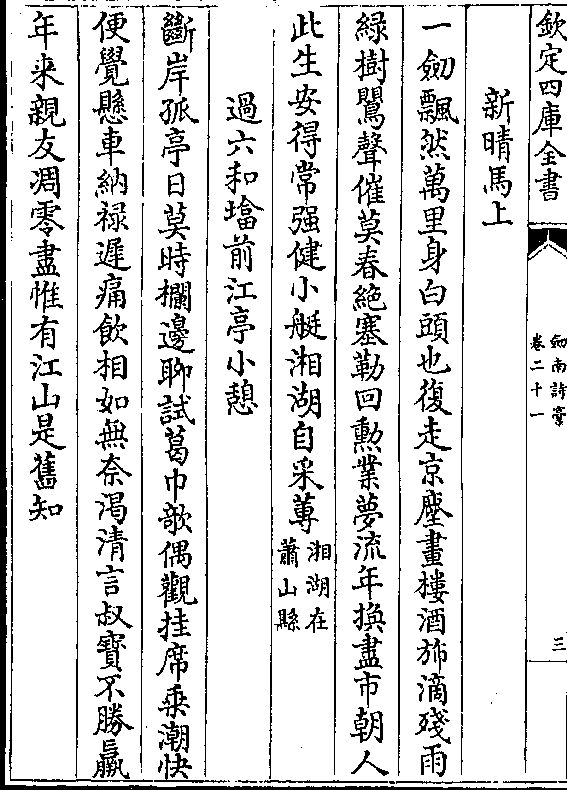 欽定四庫全書
劒南詩稾
卷二十一
三
新晴馬上
一劒飄然萬里身白頭也復走京塵畫樓酒斾滴殘雨
綠樹鸎聲催莫春絶塞勒回勲業夢流年換盡市朝人
此生安得常强健小艇湘湖自采蓴湘湖在
蕭山縣
過六和㙮前江亭小憩
斷岸孤亭日莫時欄邊聊試葛巾欹偶觀挂席乗潮快
便覺懸車納禄遲痛飲相如無奈渇清言叔寳不勝羸
年来親友凋零盡惟有江山是舊知